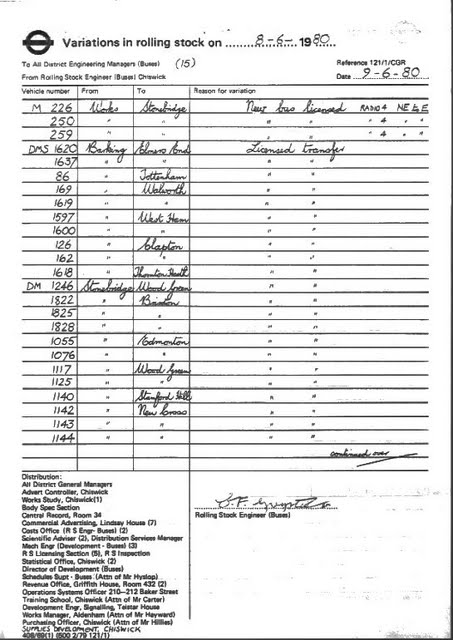 Variations in rolling stock on 8-6- 1980
To All District Engineering Managers (Buses) (15) Reference 121/1/CGR
From Rolling Stock Engineer (Buses) Chiswick Date 9-6-80
Vehicle number From To Reason for variation
M 226 Works Stonebridge New bus licensed RADIO 4 NE & E
250 " " " " " 4 " "
259 " " " " " 4 " "
DMS 1620 Barking Elmers End Licensed transfer
1637 " " " "
86 " Tottenham " "
169 " Walworth " "
1619 " " " "
1597 " West Ham " "
1600 " " " "
126 " Clapton " "
162 " " " "
1618 " Thornton Heath " "
DM 1246 Stonebridge Wood Green " "
1822 " Brixton " "
1825 " " " "
1828 " " " "
1055 " Edmonton " "
1076 " " " "
1117 " Wood Green " "
1125 " " " "
1140 " Stamford Hill " "
1142 " New Cross " "
1143 " " " "
1144 " " " "
continued over
Distribution:
All District General Managers
Advert Controller, Chiswick
Works Study, Chiswick(1)
Body Spec Section
Central Record, Room 34
Commercial Advertising, Lindsay House (7)
Costs Office (R S Engr- Buses) (2)
Scientific Adviser (2), Distribution Services Manager
Mech Engr (Development - Buses) (3)
R S Licensing Section (5), R S Inspection
Statistical Office, Chiswick (2)
Director of Development (Buses)
Schedules Supt - Buses (Attn of Mr Hyslop)
Revenue Office, Griffith House, Room 432 (2)
Operations Systems Officer 210-212 Baker Street
Training School, Chiswick (Attn of Mr Carter)
Development Engr, Signalling, Telstar House
Works Manager, Aldenham (Attn of Mr Hayward)
Purchasing Officer, Chiswick (Attn of Mr Hillies)
SUPPLIES DEVELOPMENT, CHISWICK
408/69(1) (500 2/79 121/1)
Rolling Stock Engineer (Buses)